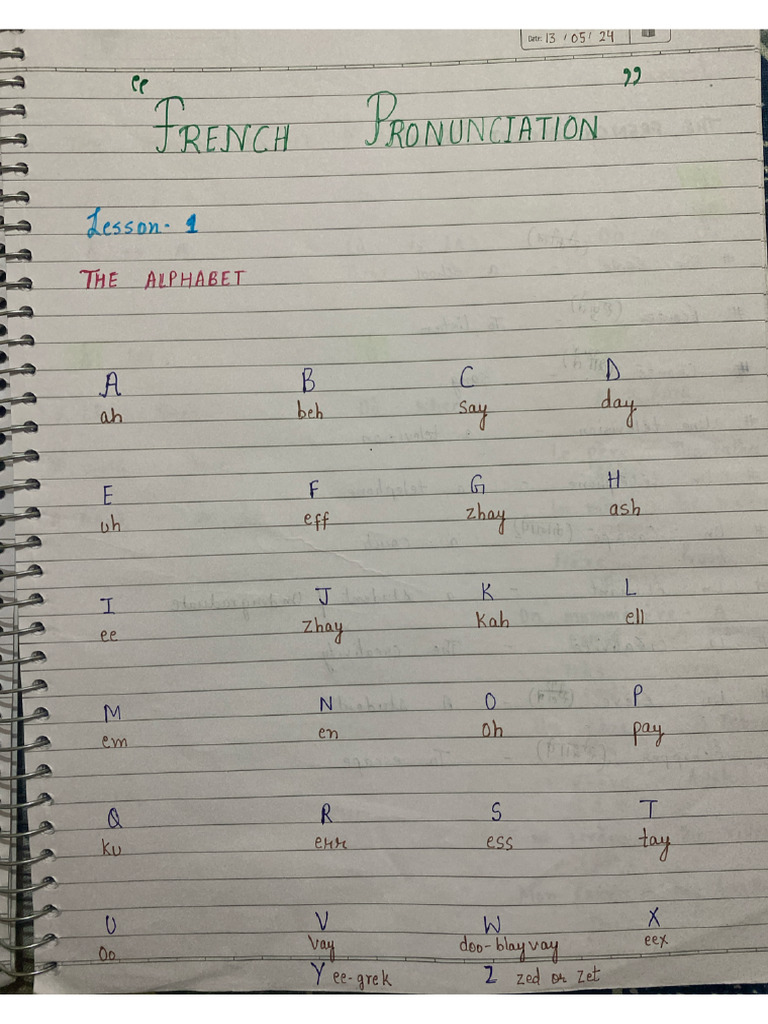 Date: 13 / 05 / 24
" FRENCH PRONUNCIATION "
Lesson- 1
THE ALPHABET
A B C D
ah beh say day
E F G H
uh eff zhay ash
I J K L
ee zhay kah ell
M N O P
em en oh pay
Q R S T
ku err ess tay
U V W X
oo vay doo-blay vay eex
Y ee-grek Z zed or zet